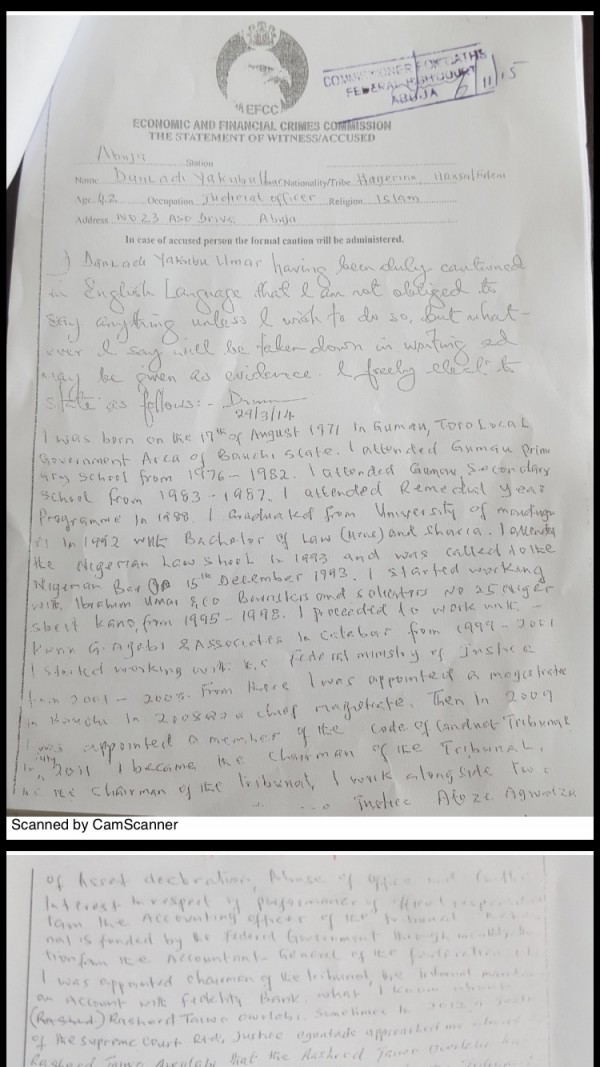 EFCC
ECONOMIC AND FINANCIAL CRIMES COMMISSION
THE STATEMENT OF WITNESS/ACCUSED
COMMISSIONER FOR OATHS
FEDERAL HIGH COURT
ABUJA
6/11/15
Abuja Station
Name Danladi Yakubu Umar Nationality/Tribe Nigerian, Hausa/Fulani
Age 42 Occupation Judicial officer Religion Islam
Address No 23 Aso Drive, Abuja
In case of accused person the formal caution will be administered.
I Danladi Yakubu Umar having been duly cautioned
in English Language that I am not obliged to
say anything unless I wish to do so, but what-
ever I say will be taken down in writing and
may be given as evidence. I freely elect to
state as follows:-
I was born on the 17th of August 1971 in Gumau, Toro Local
Government Area of Bauchi State. I attended Gumau Prim
ary School from 1976 - 1982. I attended Gumau Secondary
School from 1983 - 1987. I attended Remedial Year
Programme in 1988. I Graduated from University of
in 1992 with Bachelor of Law (Hons) and Sharia. I attended
the Nigerian Law School in 1993 and was called to the
Nigerian Bar on 15th December 1993. I started working
with Ibrahim Umar & Co Barristers and solicitors No 25 Niger
Street Kano, from 1995 - 1998. I proceeded to work with
& Associates in Calabar from 1999 - 2001
I started working with the Federal ministry of justice
from 2001 - From there I was appointed a magistrate
in Bauchi in 2008 as a chief magistrate. Then in 2009
I was appointed a member of the Code of Conduct Tribunal
in 2011 I became the Chairman of the Tribunal.
As the Chairman of the tribunal, I work alongside two
Justice
Scanned by CamScanner
of Asset declaration, Abuse of office and
Interest in respect of performance of official
I am the Accounting officer of the tribunal.
nal is funded by the Federal Government through monthly
from the Accountant General of the federation
I was appointed chairman of the tribunal, the tribunal
an Account with Fidelity Bank. what I know about
(Rasheed) Rasheed Taiwo Owolabi. Sometimes in 2012 a
of the supreme court Rtd, Justice approached me
Rasheed Taiwo Owolabi that the Rasheed Taiwo Owolabi